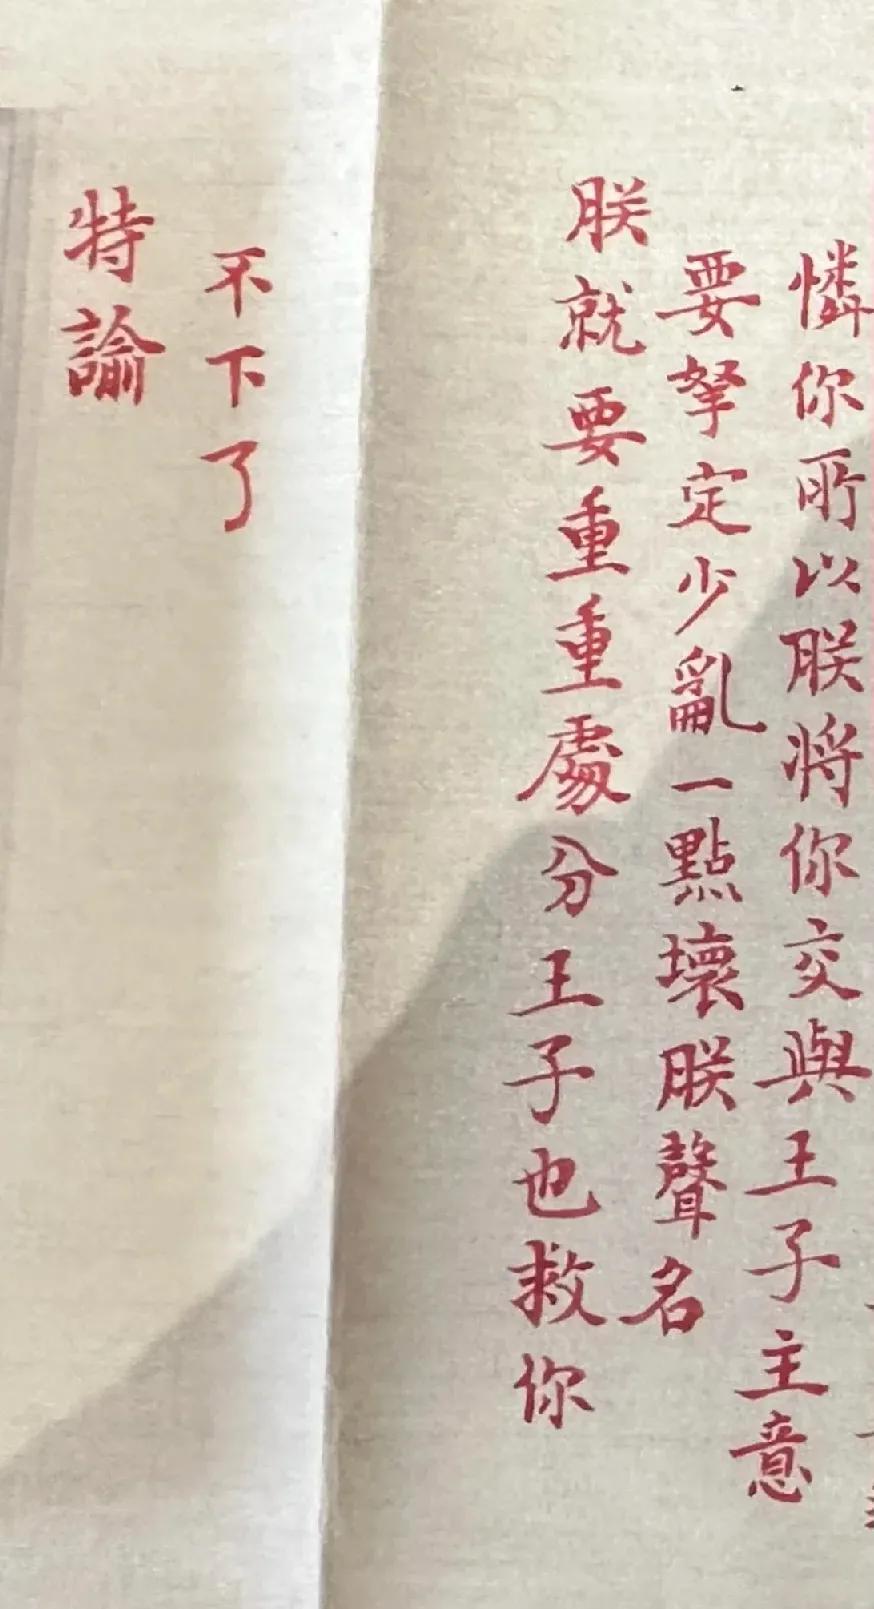 憐你所以朕將你交與王子主意
要拏定少亂一點壞朕聲名
朕就要重重處分王子也救你
不下了
特諭